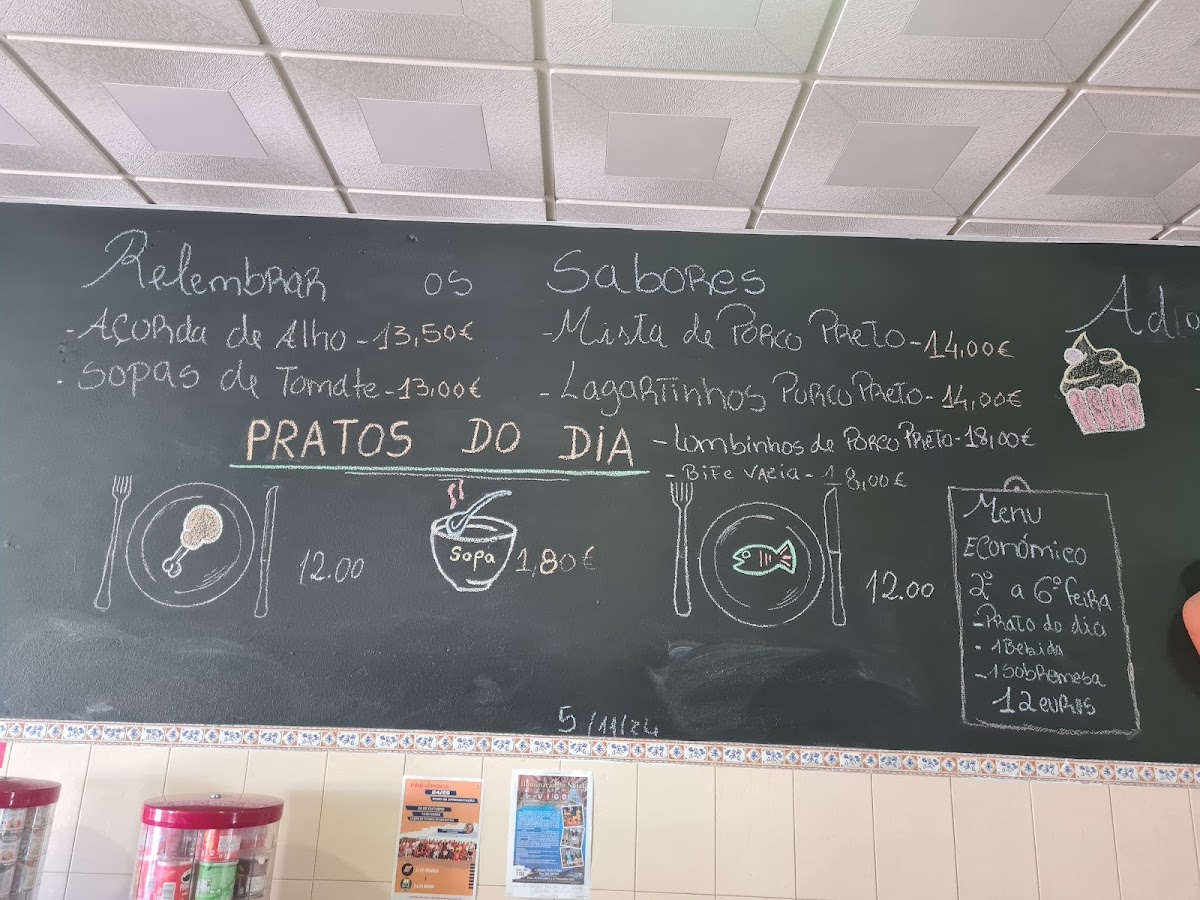 Relembrar os Sabores
- Açorda de Alho - 13,50€
- Sopas de Tomate - 13,00€
- Mista de Porco Preto - 14,00€
- Lagartinhos Porco Preto - 14,00€
- Lombinhos de Porco Preto - 18,00€
- Bife Vazia - 18,00€
PRATOS DO DiA
12.00
Sopa
1,80€
12.00
Menu
Económico
2º a 6º feira
- Prato do dia
- 1 Bebida
- 1 Sobremesa
12 euris
5/11/24
PRÉ-ÉPOCA
24/25